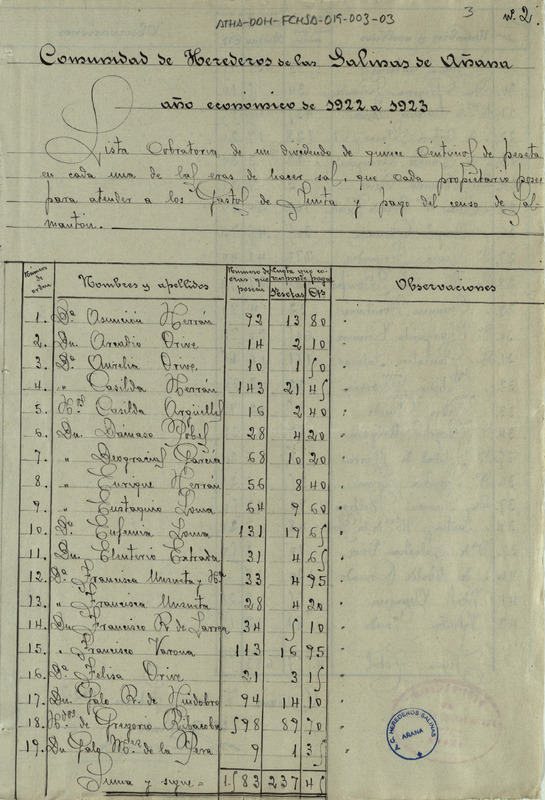 ATHA-DOH-FCHSA-019-003-03
3
nº 2.
Comunidad de Herederos de las Salinas de Añana
año económico de 1922 a 1923
Lista Cobratoria de un dividendo de quince Centimos de peseta
en cada una de las eras de hacer sal, que cada propietario posee
para atender a los Gastos de Junta y pago del censo de Sal
mantón.
Número de orden Nombres y apellidos Número de eras que poseen Cuota que corresponde pagar Pesetas Cts Observaciones
1. Dª Asunción Herrán 92 13 80 "
2. Dn Arcadio Orive 14 2 10 "
3. Dª Aurelia Orive 10 1 50 "
4. " Casilda Herrán 143 21 45 "
5. Casilda Argüelles 16 2 40 "
6. Dn Dámaso 28 4 20 "
7. " Deogracias García 68 10 20 "
8. " Enrique Herrán 56 8 40 "
9. " Eustaquio Loma 64 9 60 "
10. Dª Eufemia Loma 131 19 65 "
11. Dn Eluterio Extrada 31 4 65 "
12. Dª Francisca Unzueta y Hª 33 4 95 "
13. " Francisca Unzueta 28 4 20 "
14. Dn Francisco R. de Larrea 34 5 10 "
15. " Francisco Varona 113 16 95 "
16. Dª Felisa Orive 21 3 15 "
17. Dn Galo R. de Huidobro 94 14 10 "
18. Hros de Gregorio Ribacoba 598 89 70 "
19. Dn Galo de la Pera 9 1 35 "
Suma y sigue = 1.583 237 45
A.C. HEREDEROS SALINAS
AÑANA